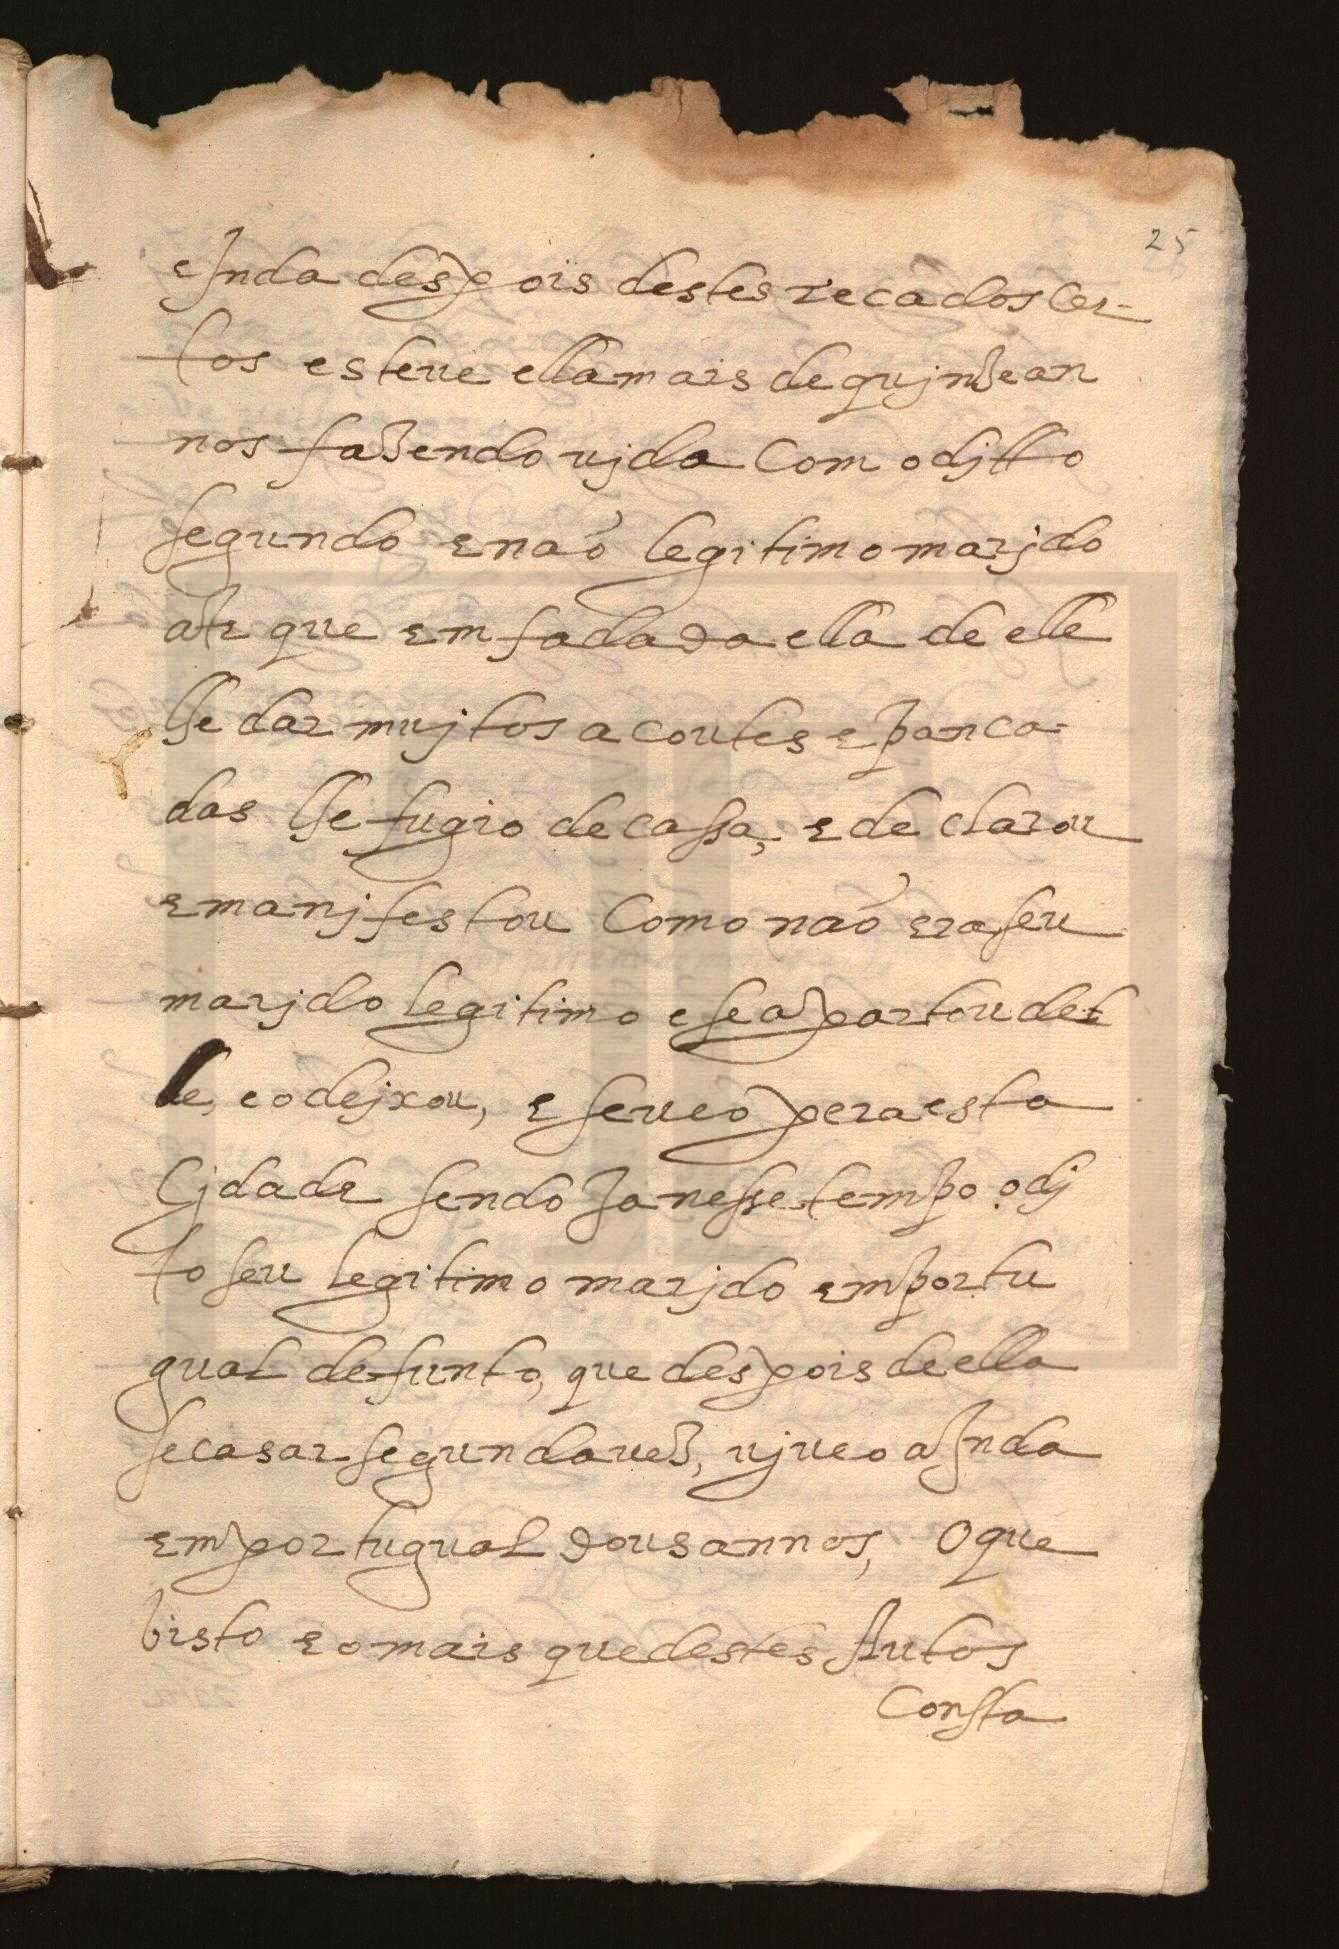 25
e Inda despois destes recados Cer-
tos esteue ella mais de quinze an
nos fazendo ujda Com o djtto
segundo e naõ legitimo marjdo
ate que emfadada ella de elle
lhe dar mujtos acoutes e panca-
das lhe fugio de cassa, e declarou
e manjfestou Como naõ era seu
marjdo legitimo e se apartou del
le, e o dejxou, e se ueo pera esta
Cjdade sendo Ja nesse tempo o dj
to seu legitimo marjdo em portu
gual defunto, que despois de ella
se casar segunda uez, ujueo aInda
em portugual dous annos, O que
visto e o mais que destes Autos
Consta